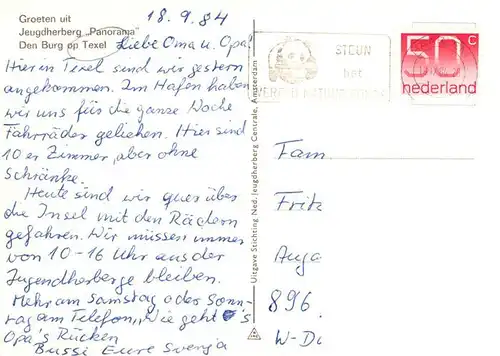 Groeten uit
Jeugdherberg „Panorama"
Den Burg op Texel
18.9.84
Liebe Oma u. Opa!
Hier in Texel sind wir gestern
angekommen. Im Hafen haben
wir uns für die ganze Woche
Fahrräder geliehen. Hier sind
10er Zimmer, aber ohne
Schränke.
Heute sind wir quer über
die Insel mit den Rädern
gefahren. Wir müssen immer
von 10-16 Uhr aus der
Jugendherberge bleiben.
Mehr am Samstag oder Sonn-
tag am Telefon, Wie geht's
Opa's Rücken
Bussi Eure Svenja
Uitgave Stichting Ned. Jeugdherberg Centrale, Amsterdam
STEUN
het
50 c
nederland
Fam.
Fritz
Auga
896.
W-De